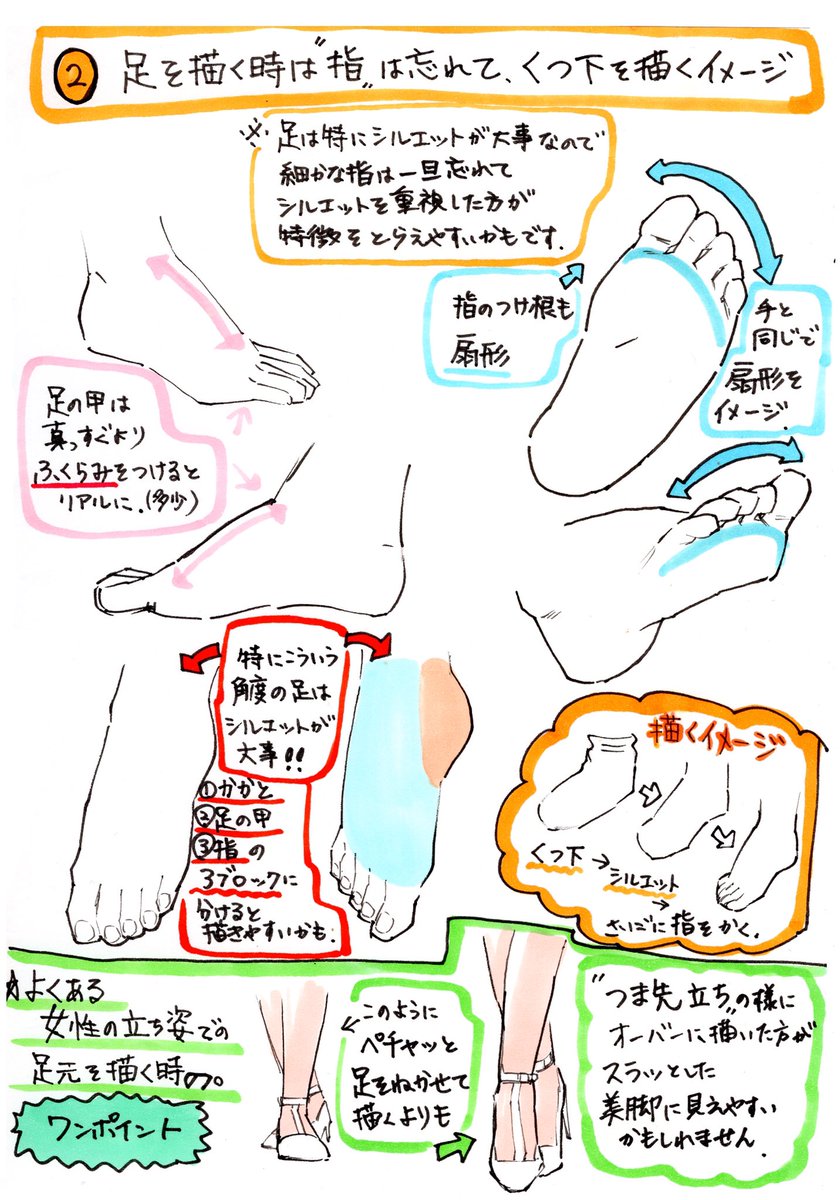 ② 足を描く時は"指"は忘れて、くつ下を描くイメージ
※足は特にシルエットが大事なので
細かな指は一旦忘れて
シルエットを重視した方が
特徴をとらえやすいかもです.
指のつけ根も
扇形
手と
同じで
扇形を
イメージ.
足の甲は
真っすぐより
ふくらみをつけると
リアルに.(多少)
特にこういう
角度の足は
シルエットが
大事!!
①かかと
②足の甲
③指の
3ブロックに
分けると
描きやすいかも.
描くイメージ
くつ下→
シルエット
→
さいごに指をかく.
★よくある
女性の立ち姿での
足元を描く時の。
ワンポイント
このように
ペチャッと
足をねかせて
描くよりも
"つま先立ち"の様に
オーバーに描いた方が
スラッとした
美脚に見えやすい
かもしれません.